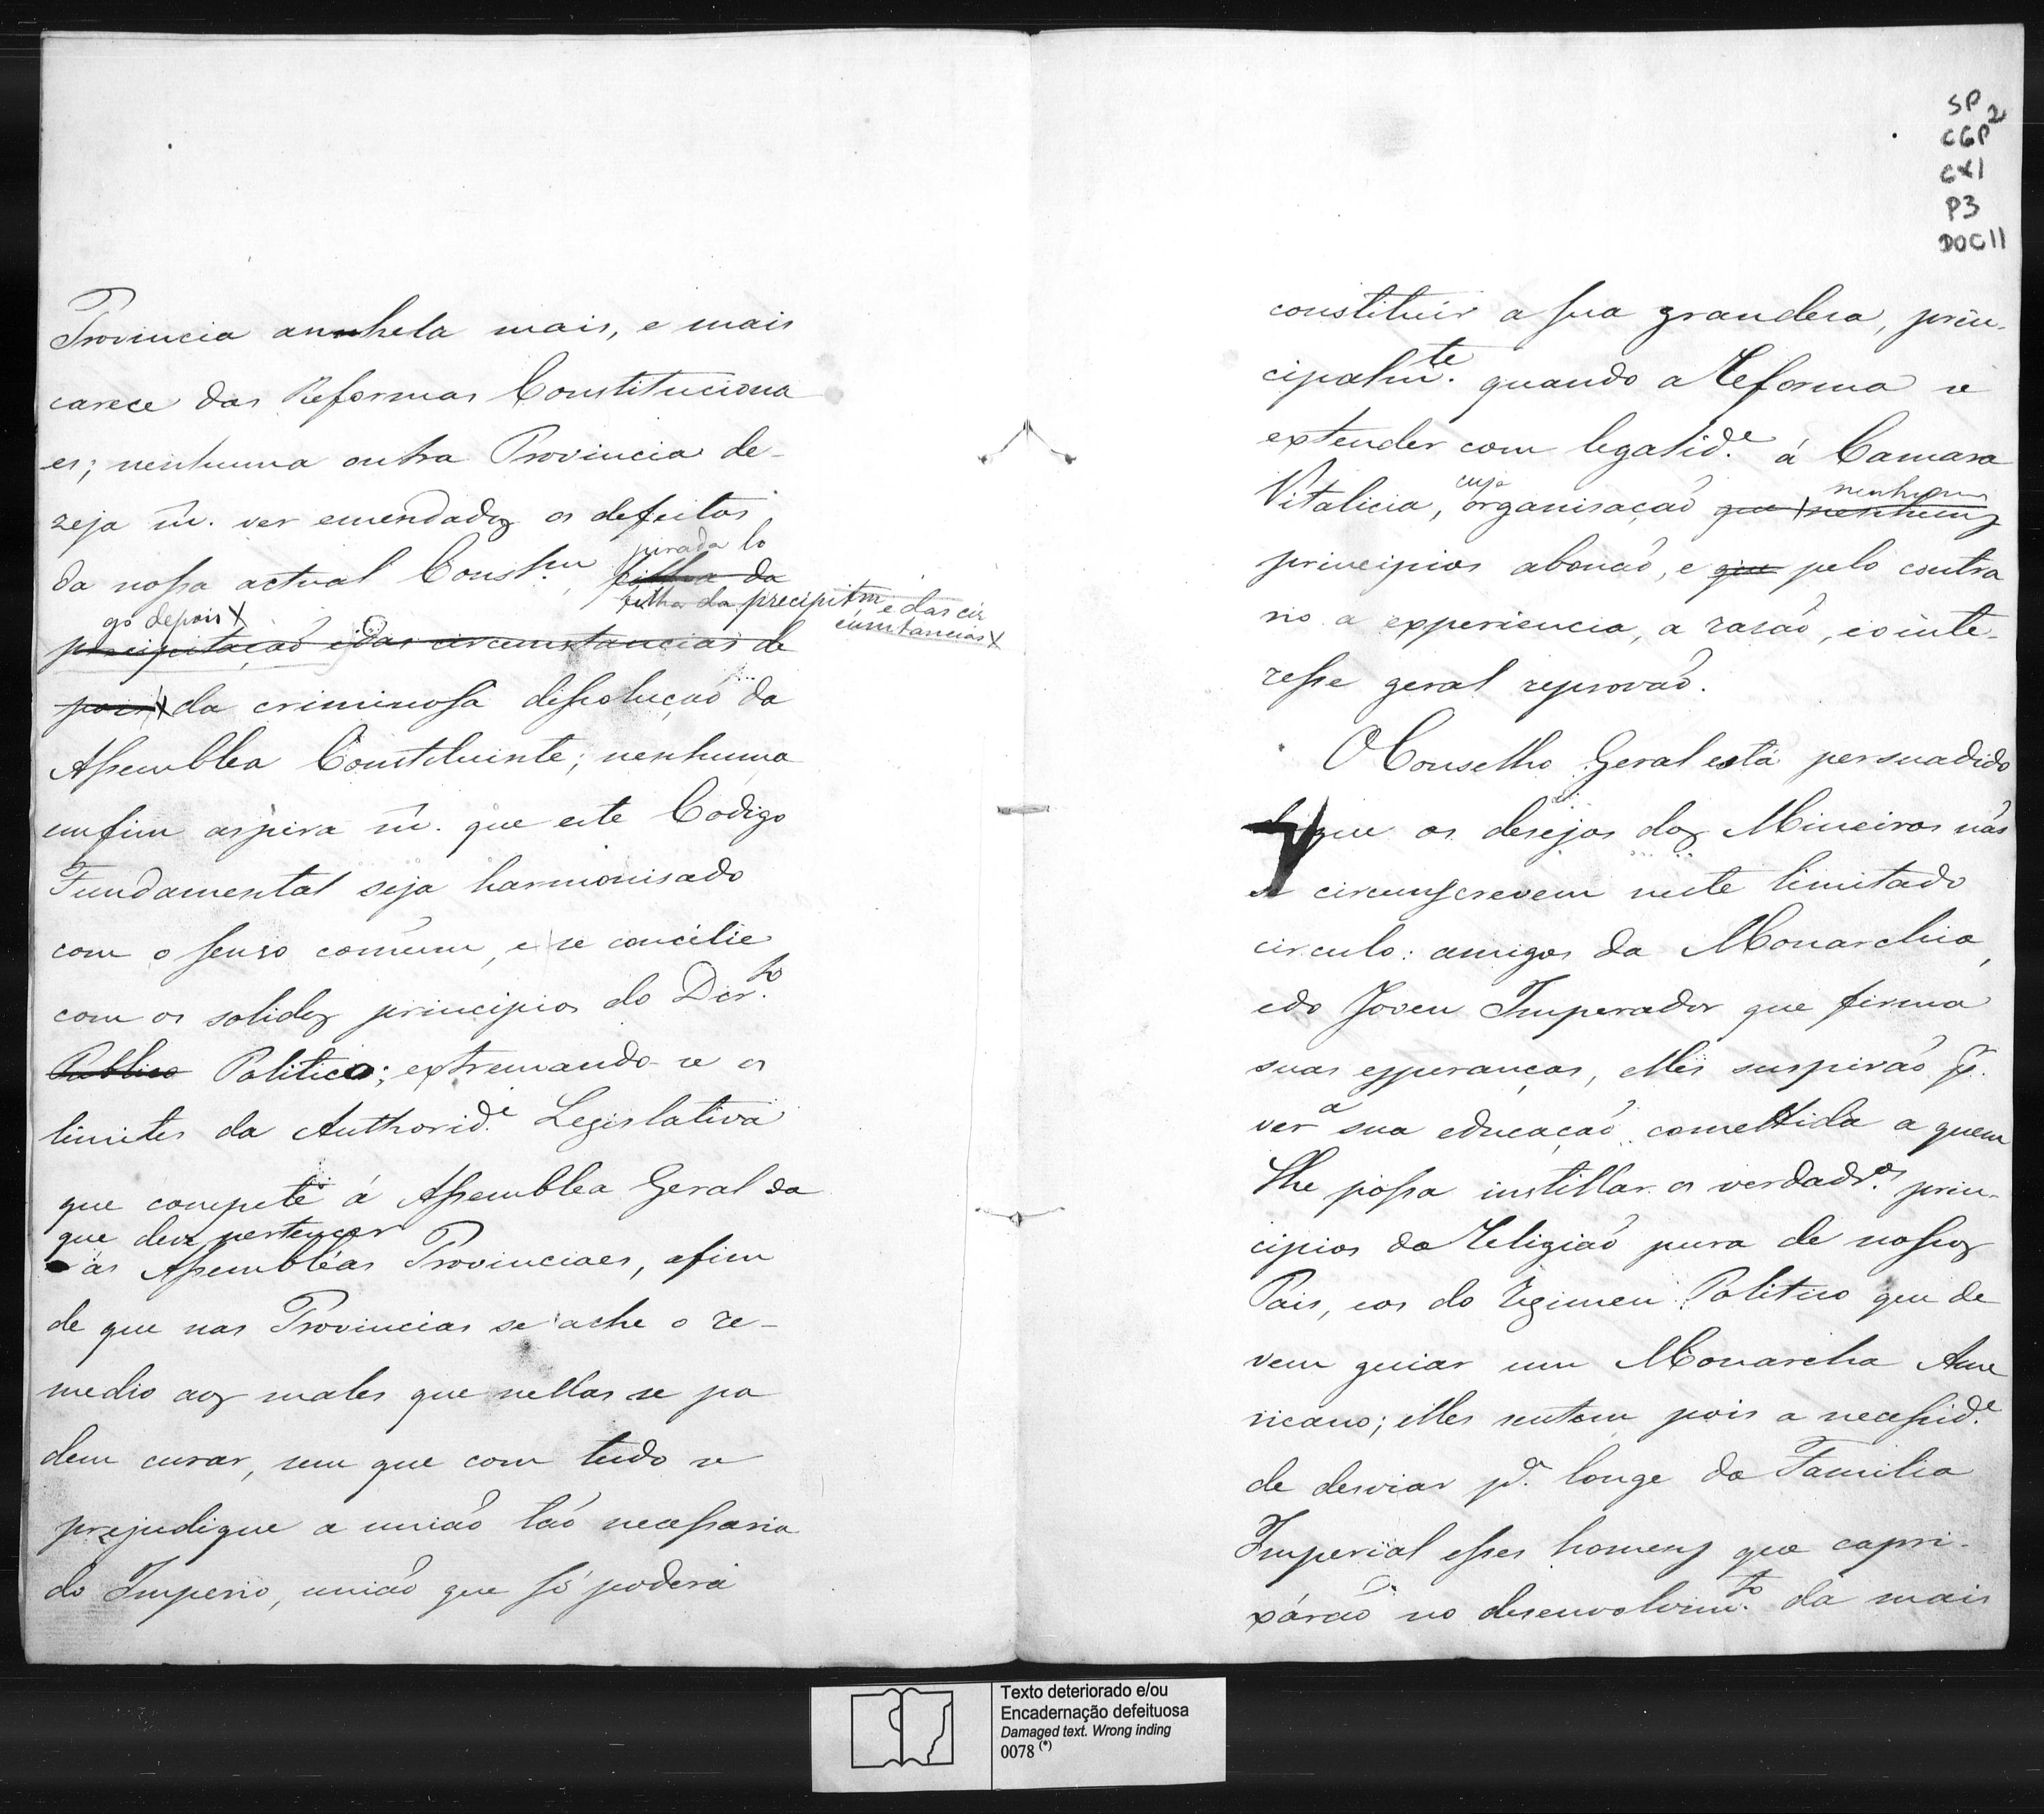 Provincia anhela mais, e mais
carece das Reformas Constituciona
es; nenhuma outra Provincia de-
zeja m. ver emendados os defeitos
da nossa actual Constm, jurada lo
filha da
filha da precipitm e das cir
cumstancias X
go depois X
precipitação e das circumstancias de
pois X da criminosa dissolução da
Assemblea Constituinte; nenhuma
emfim aspira m. que este Codigo
Fundamental seja harmonisado
com o senso comũm, e se concilie
com os solidos principios do Dirto.
Publico Politico; extremando-se os
limites da Authoride. Legislativa
que compete á Assemblea Geral da
que deve pertencer
ás Assembléas Provinciaes, afim
de que nas Provincias se ache o re-
medio aos males que nellas se po
dem curar, sem que com tudo se
prejudique a união tão necessaria
do Imperio, união que só poderá
SP 2
CGP
CX1
P3
DOC11
constituir a sua grandesa, prin-
cipalmte. quando a Reforma se
extender com legalide. á Camara
Vitalicia, cuja organisação que nenhuns nenhuns
principios abonão, e que pelo contra
rio a experiencia, a razão, e o inte-
resse geral reprovão.
O Conselho Geral está persuadido
que os desejos dos Mineiros não
se circunscrevem neste limitado
circulo: amigos da Monarchia,
e do Joven Imperador que firma
suas esperanças, elles suspirão pr.
ver a sua educação comettida a quem
lhe possa instillar os verdadros. prin-
cipios da Religião pura de nossos
Pais, e os do Regimen Politico que de
vem guiar um Monarcha Ame
ricano; elles sentem pois a necesside.
de desviar pa. longe da Familia
Imperial esses homens que capri-
xárão no desenvolvimto. da mais
Texto deteriorado e/ou
Encadernação defeituosa
Damaged text. Wrong inding
0078 (*)